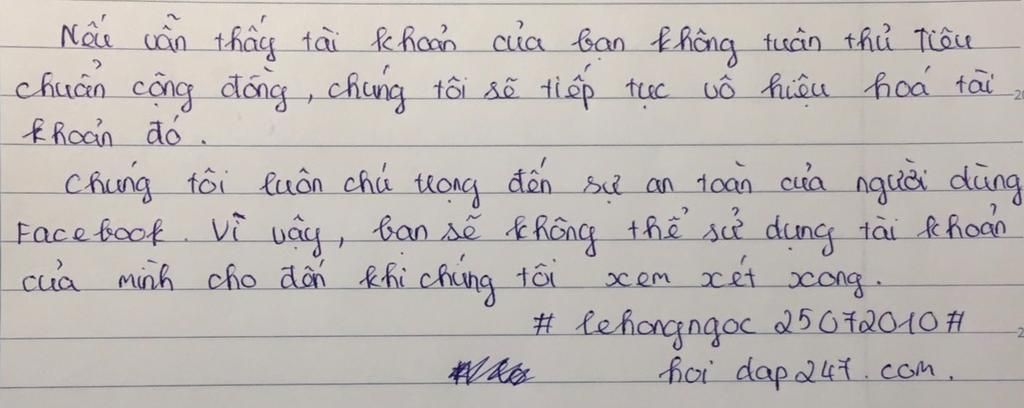 Nếu vẫn thấy tài khoản của bạn không tuân thủ Tiêu
chuẩn cộng đồng, chúng tôi sẽ tiếp tục vô hiệu hoá tài
khoản đó.
Chúng tôi luôn chú trọng đến sự an toàn của người dùng
Facebook. Vì vậy, bạn sẽ không thể sử dụng tài khoản
của mình cho đến khi chúng tôi xem xét xong.
# lehongngoc 25072010#
hoi dap247.com.